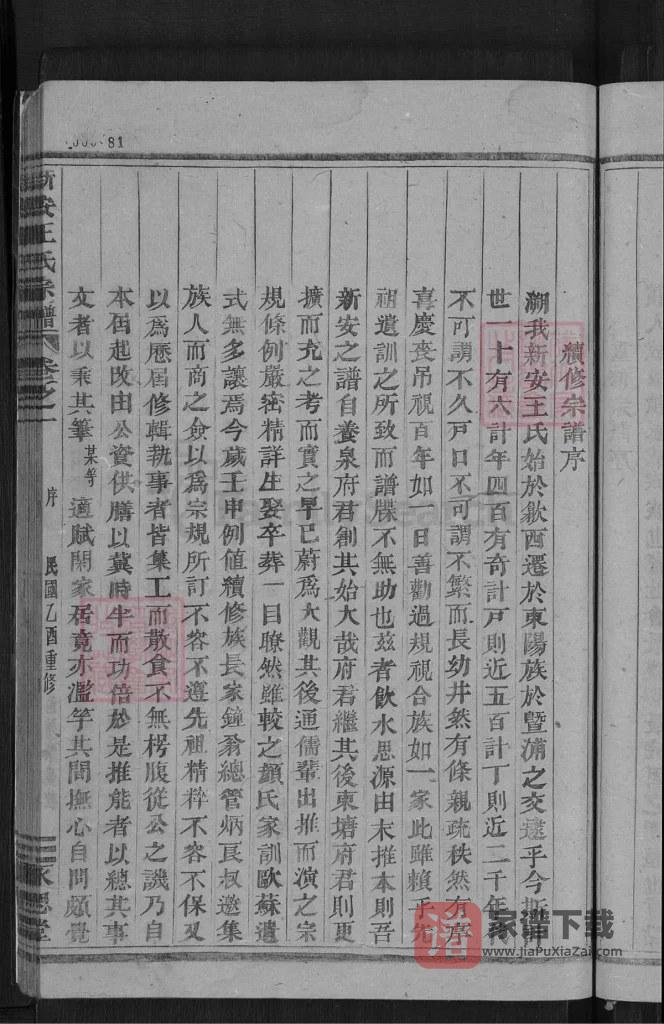 81
續修宗譜序
溯我新安王氏始於歙西遷於東陽族於暨浦之交逮乎今
世一十有六計年四百有奇計戸則近五百計丁則近二千年
不可謂不久戸口不可謂不繁而長幼井然有條親疏秩然有序
喜慶喪吊視百年如一日善勸過規視合族如一家此雖賴乎先
祖遺訓之所致而譜牒不無助也茲者飲水思源由末推本則吾
新安之譜自養泉府君創其始大哉府君繼其後東塘府君則更
擴而充之考而實之早已蔚爲大觀其後通儒輩出推而演之宗
規條例嚴密精詳生娶卒葬一目瞭然雖較之顏氏家訓歐蘇遺
式無多讓焉今歲壬申例値續修族長家鐘翁總管炳良叔邀集
族人而商之僉以爲宗規所訂不容不遵先祖精粹不容不保又
以爲歷屆修輯執事者皆集工而散食不無枵腹從公之譏乃自
本屆起改由公資供膳以冀時半而功倍於是推能者以總其事
文者以秉其筆某等適賦閑家居竟亦濫竽其間撫心自問頗覺
新安王氏宗譜
卷之一
序
民國乙酉重修
永思堂
譜
家谱下载
www.jiaPuXiaZai.com